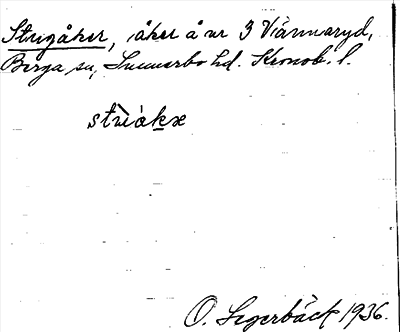 Strigåker, åker å nr 3 Värmaryd,
Berga sn, Sunnerbo hd. Kronob. l.
strìåkɐ
O. Segerbäck 1936.